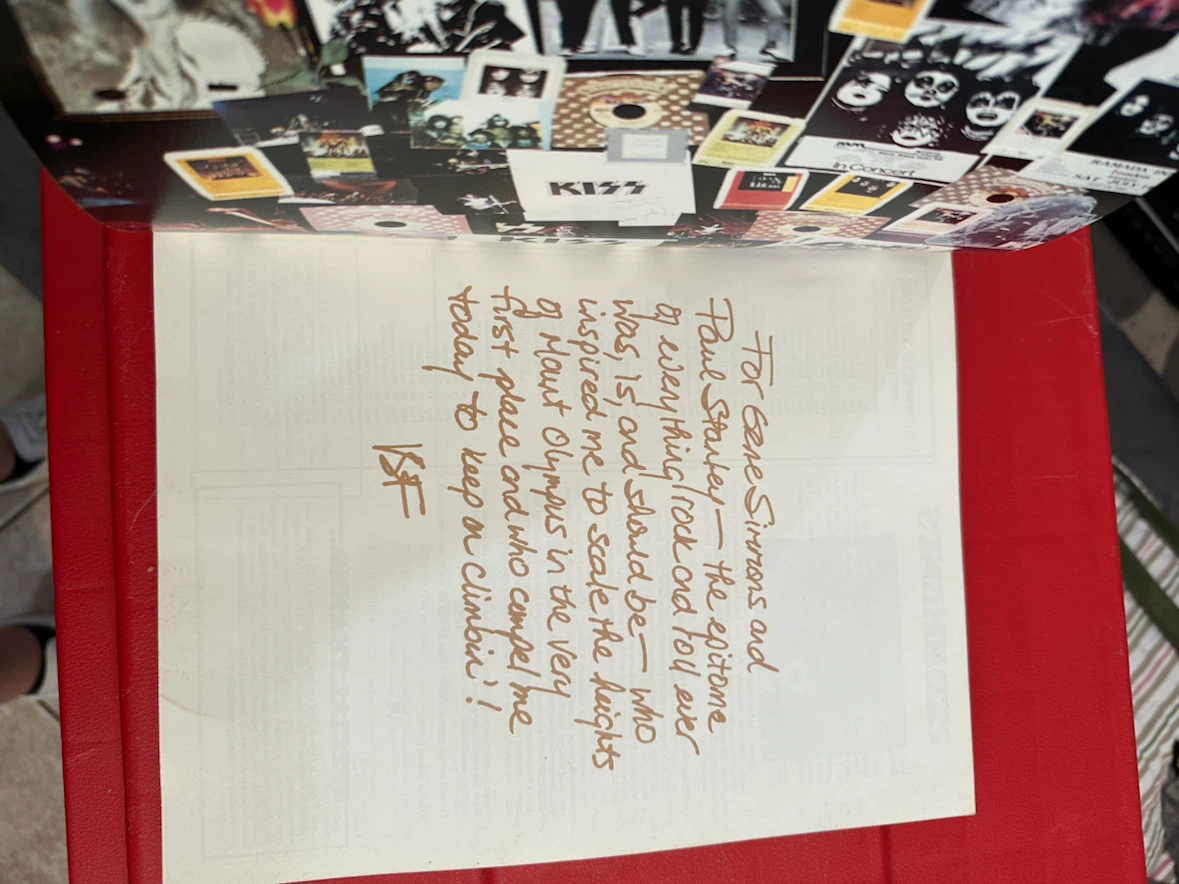 KISS
in Concert
RAMADA IN
London
SAT JULY
KISS
For Gene Simmons and
Paul Stanley — the epitome
of everything rock and roll ever
was, is, and should be — who
inspired me to scale the heights
of Mount Olympus in the very
first place and who compel me
today to keep on climbin'!